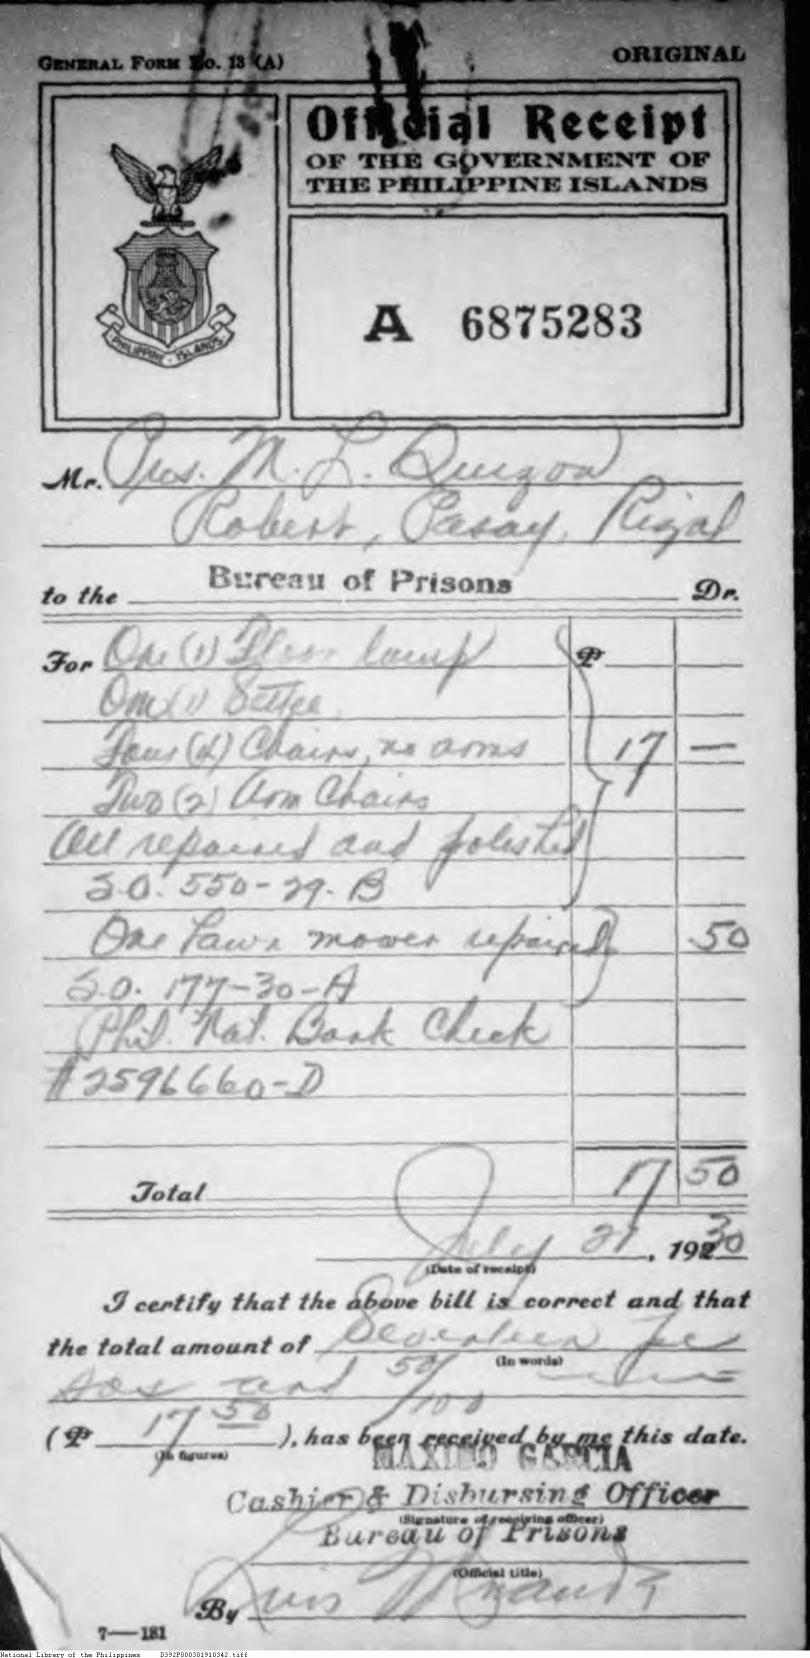 GENERAL FORM No. 13 (A)
ORIGINAL
Official Receipt
OF THE GOVERNMENT OF
THE PHILIPPINE ISLANDS
PHILIPPINE ISLANDS
A 6875283
Mr. Pres. M. L. Quezon
Roberts, Pasay, Rizal
to the Bureau of Prisons Dr.
For One (1) Floor lamp ₱
One (1) Settee
Four (4) Chairs, no arms 17 —
Two (2) Arm Chairs
All repaired and polished
S.O. 550-29-B
One Lawn mower repaired 50
S.O. 177-30-A
Phil. Nat. Bank Check
#2596660-D
Total 17 50
July 21, 1930
(Date of receipt)
I certify that the above bill is correct and that
the total amount of Seventeen Pe
(In words)
sos and 50/100
(₱ 17 50 ), has been received by me this date.
(In figures)
MAXIMO GARCIA
Cashier & Disbursing Officer
(Signature of receiving officer)
Bureau of Prisons
(Official title)
By Luis
7—181
National Library of the Philippines D392P000301910342.tiff